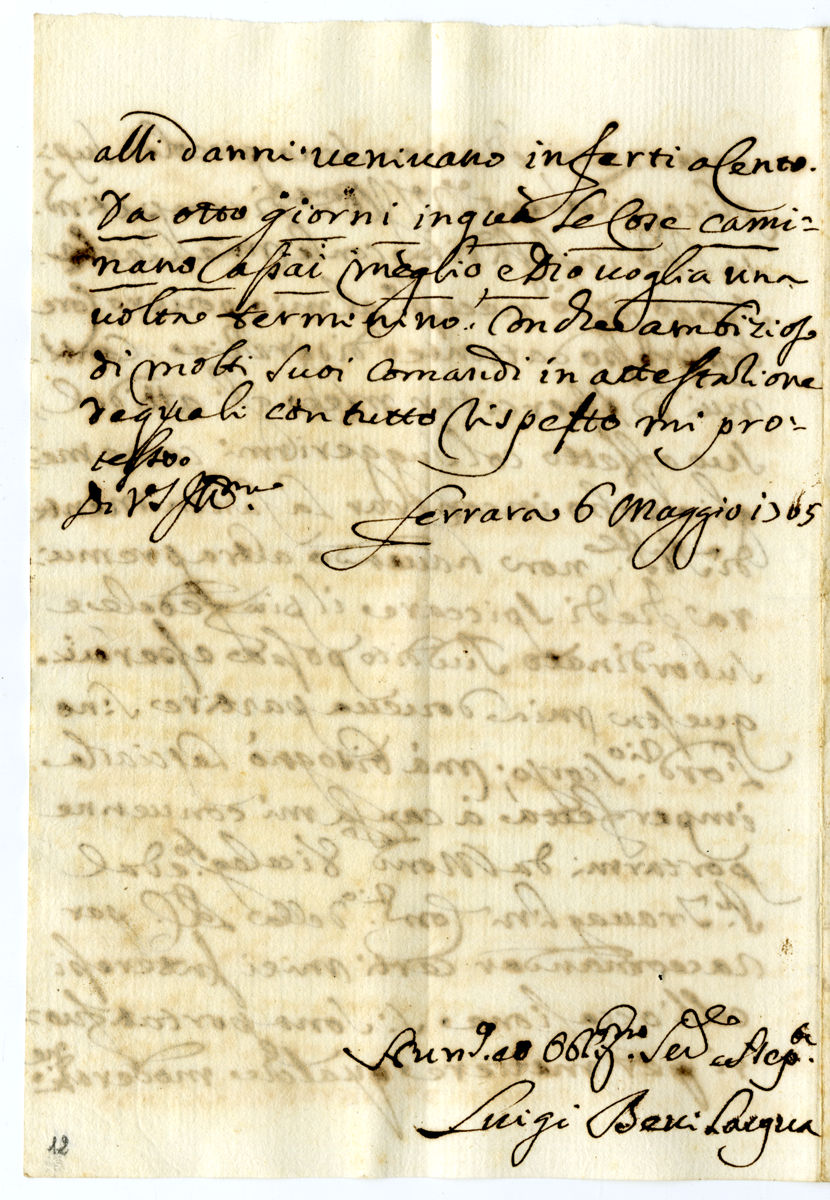 alli danni ueniuano inferti a Cento.
Da otto giorni in quà le Cose cami=
nano assai meglio, e Dio uoglia una
uolta terminino. Con che ambizioso
di molti suoi Comandi in attestatione
de quali con tutto rispetto mi pro=
testo.
Di V.S. Ill.ma
Ferrara 6 Maggio 1705
Obblig.mo Ser.
Luigi Beuilacqua
12